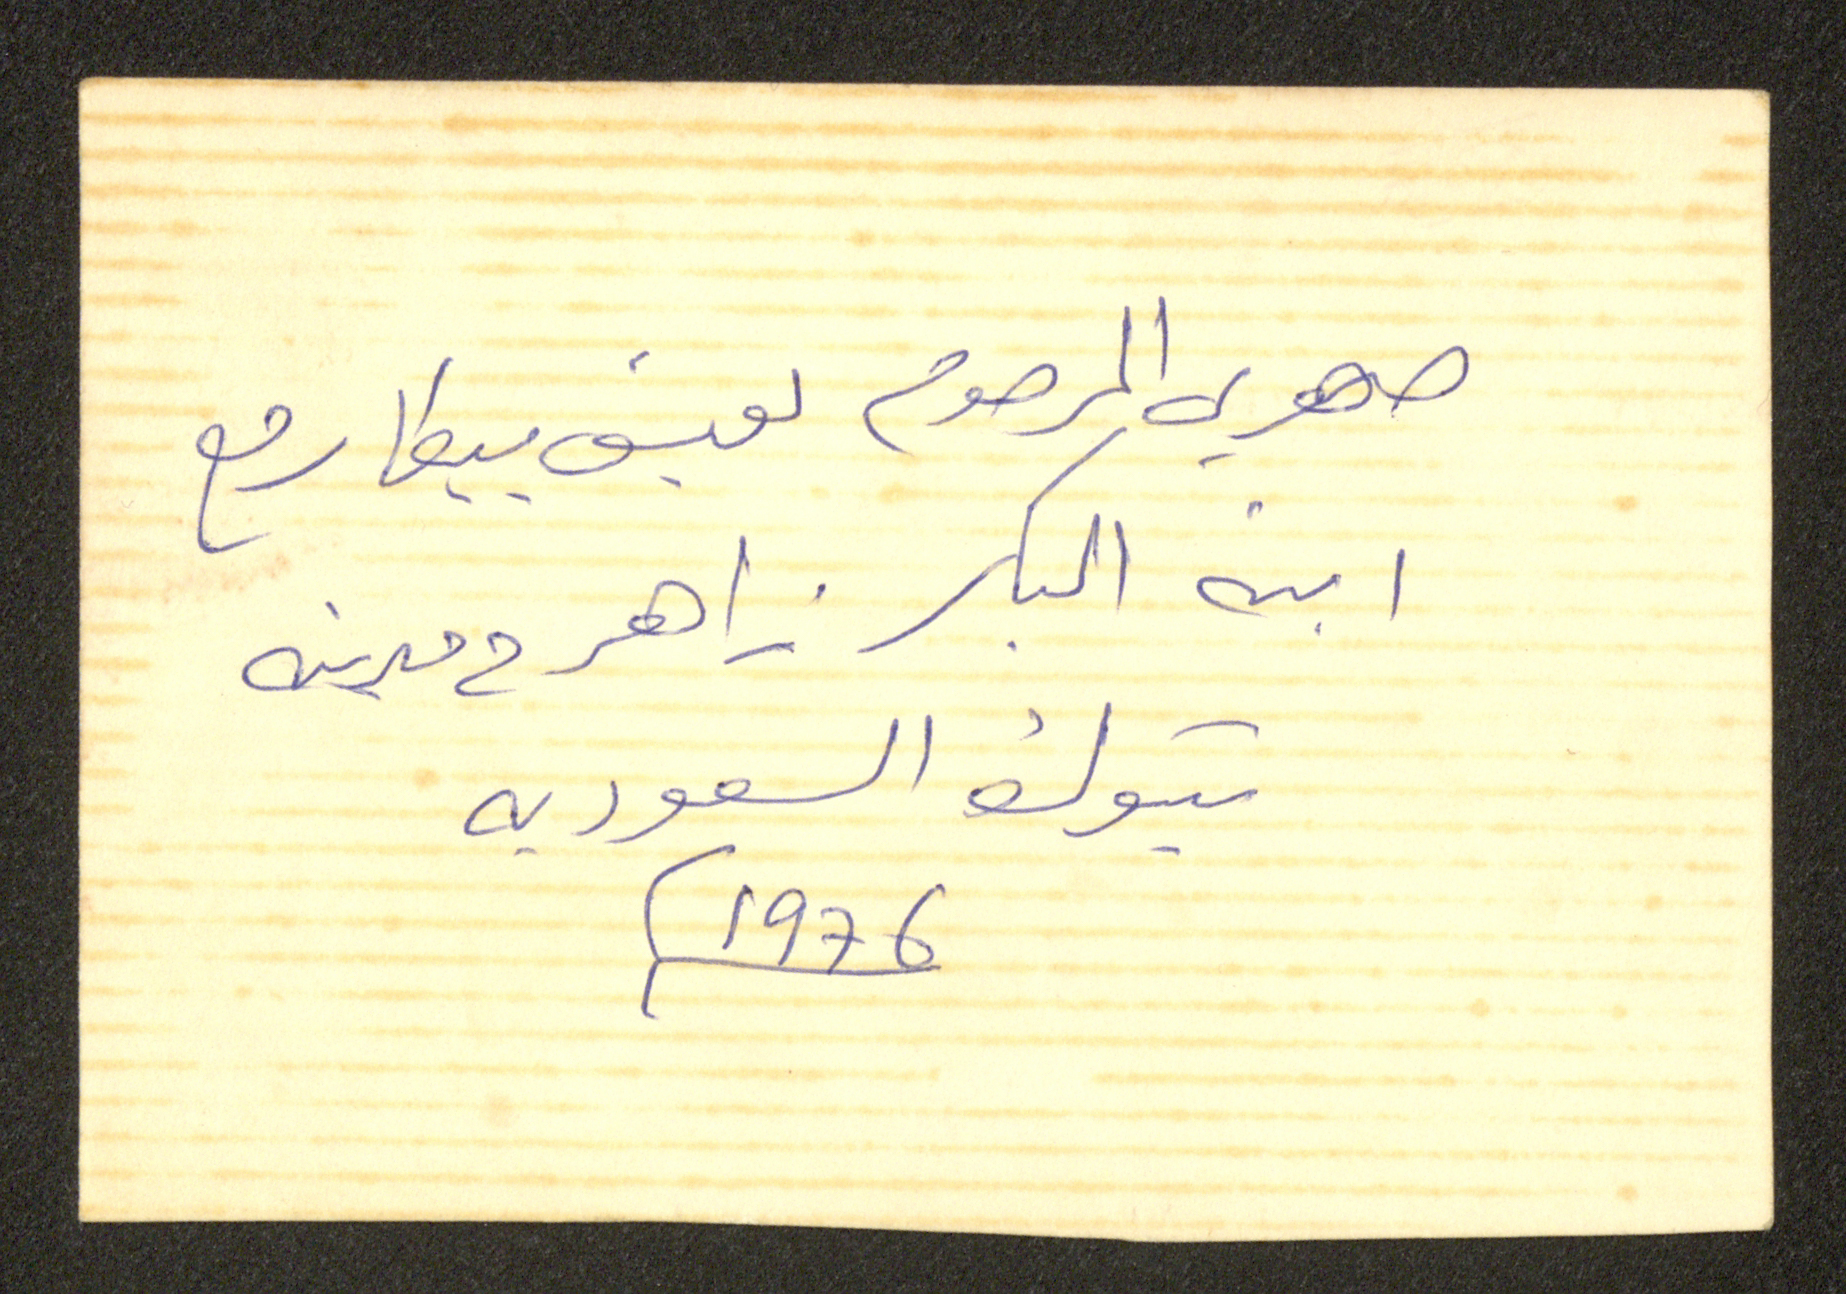 صهري المرحوم لعيف بيطار مع
ابنه البكر زاهر في مدينه
تبوك السعوديه
1976